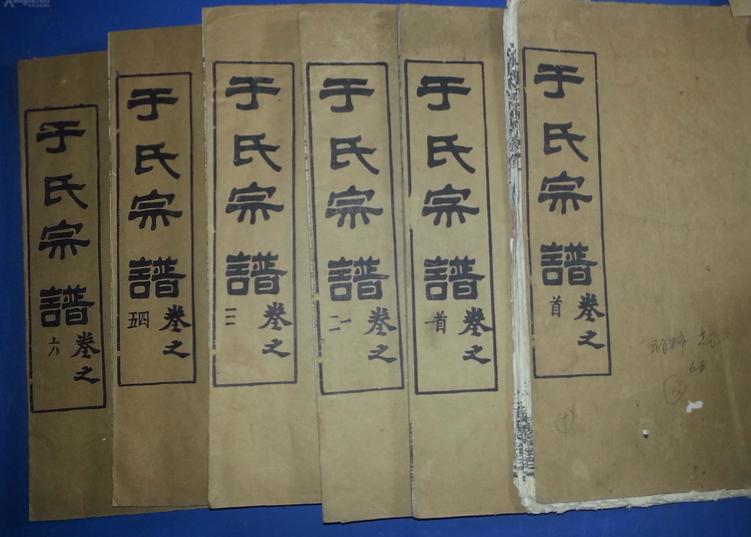 于氏宗譜卷之首
于氏宗譜卷之首
于氏宗譜卷之一二
于氏宗譜卷之三
于氏宗譜卷之四五
于氏宗譜卷之六